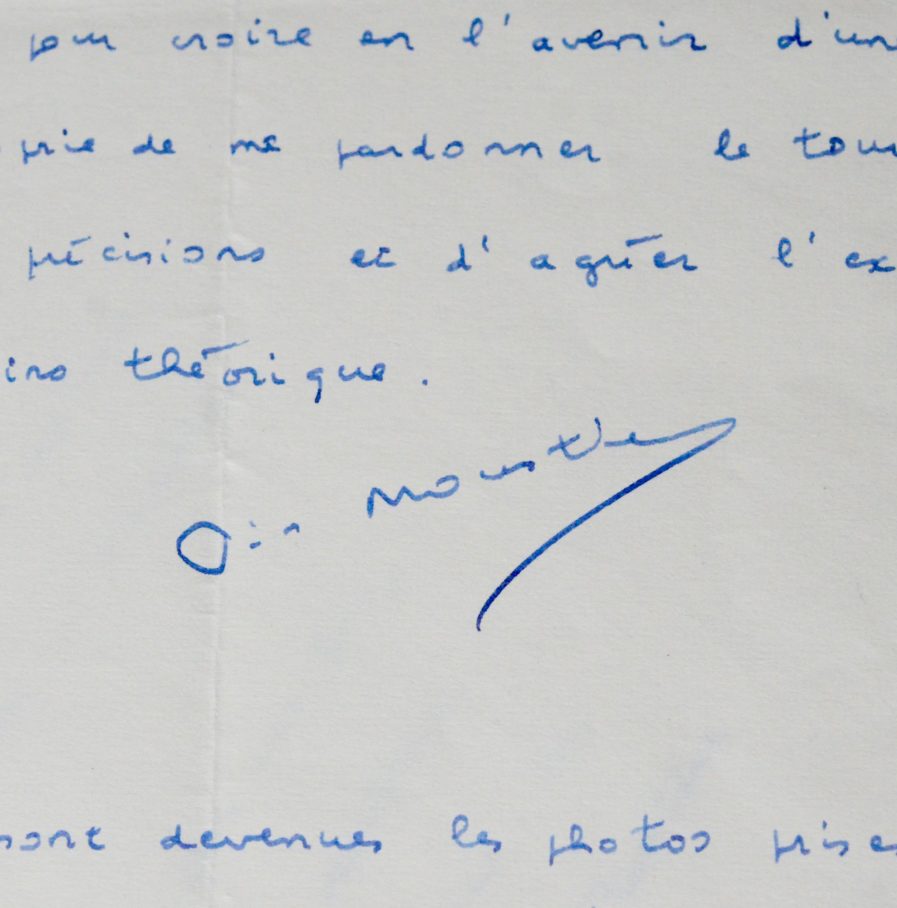 pour croire en l'avenir d'un
prie de me pardonner le tour
précisions et d'agréer l'ex
théorique.
sont devenues les photos prises